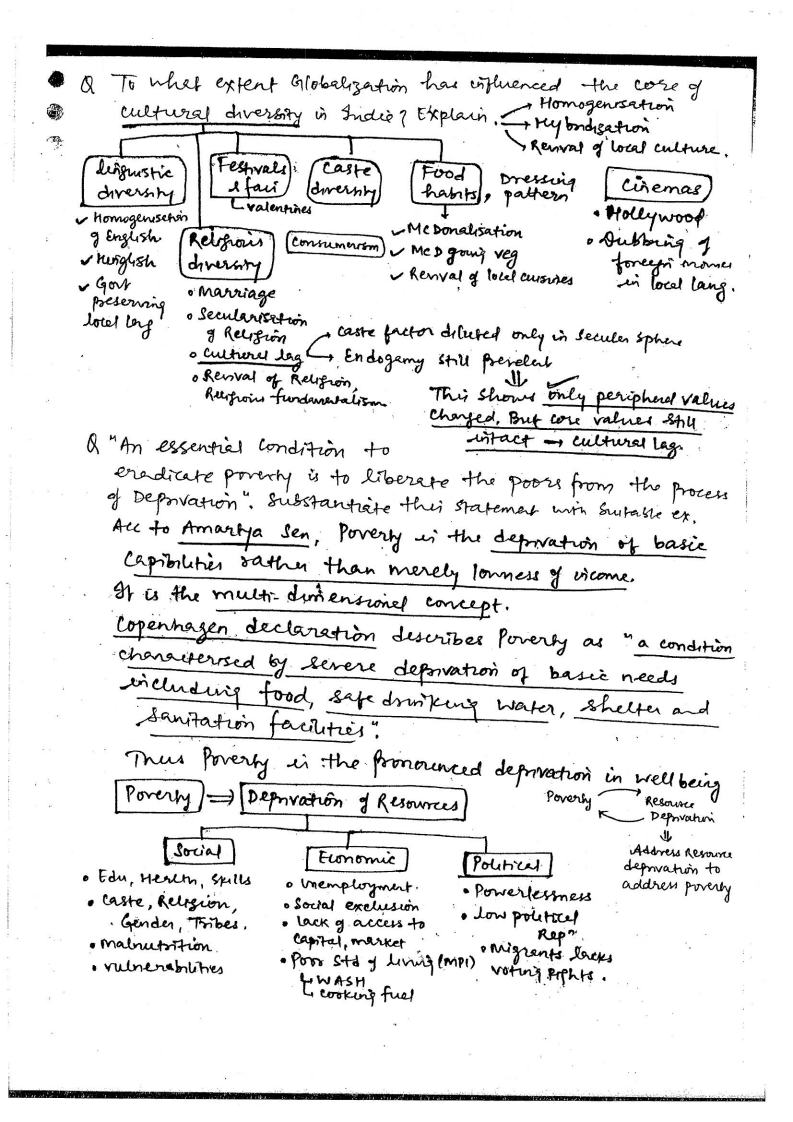 Q To what extent Globalization has influenced the core of
cultural diversity in India? Explain.
→ Homogenisation
→ Hybridization
→ Revival of local culture.
linguistic diversity
✓ Homogenisation
of English
✓ Hinglish
✓ Govt
preserving
local lang
Religious
diversity
• Marriage
• Secularisation
of Religion
• Cultural lag
→ caste factor diluted only in secular sphere
→ Endogamy still prevelent
• Revival of Religion,
Religious fundamentalism
⇓
This shows only peripheral values
changed, But core values still
intact → cultural lag.
Festivals
& fair
valentines
Caste
diversity
Consumerism
Food
habits, Dressing
pattern
✓ McDonalisation
✓ McD going veg
✓ Revival of local cuisines
Cinemas
• Hollywood
• Dubbing of
foreign movies
in local lang.
Q "An essential condition to
eradicate poverty is to liberate the poors from the process
of Deprivation". Substantiate this statement with suitable ex.
Acc to Amartya Sen, Poverty is the deprivation of basic
Capibilities rather than merely lowness of income.
It is the multi-dimensional concept.
Copenhagen declaration describes Poverty as "a condition
characterised by severe deprivation of basic needs
including food, safe drinking water, shelter and
sanitation facilities".
Thus Poverty is the pronounced deprivation in well being
Poverty ⇒ Deprivation of Resources
Poverty → Resource
Deprivation
⇓
Address Resource
deprivation to
address poverty
Social
• Edu, Health, skills
• Caste, Religion,
Gender, Tribes.
• malnutrition
• vulnerabilities
Economic
• Unemployment.
• Social exclusion
• lack of access to
capital, market
• Poor Std of living (MPI)
↳ WASH
↳ cooking fuel
Political
• Powerlessness
• low political
Repⁿ
• Migrants lacks
voting Rights.